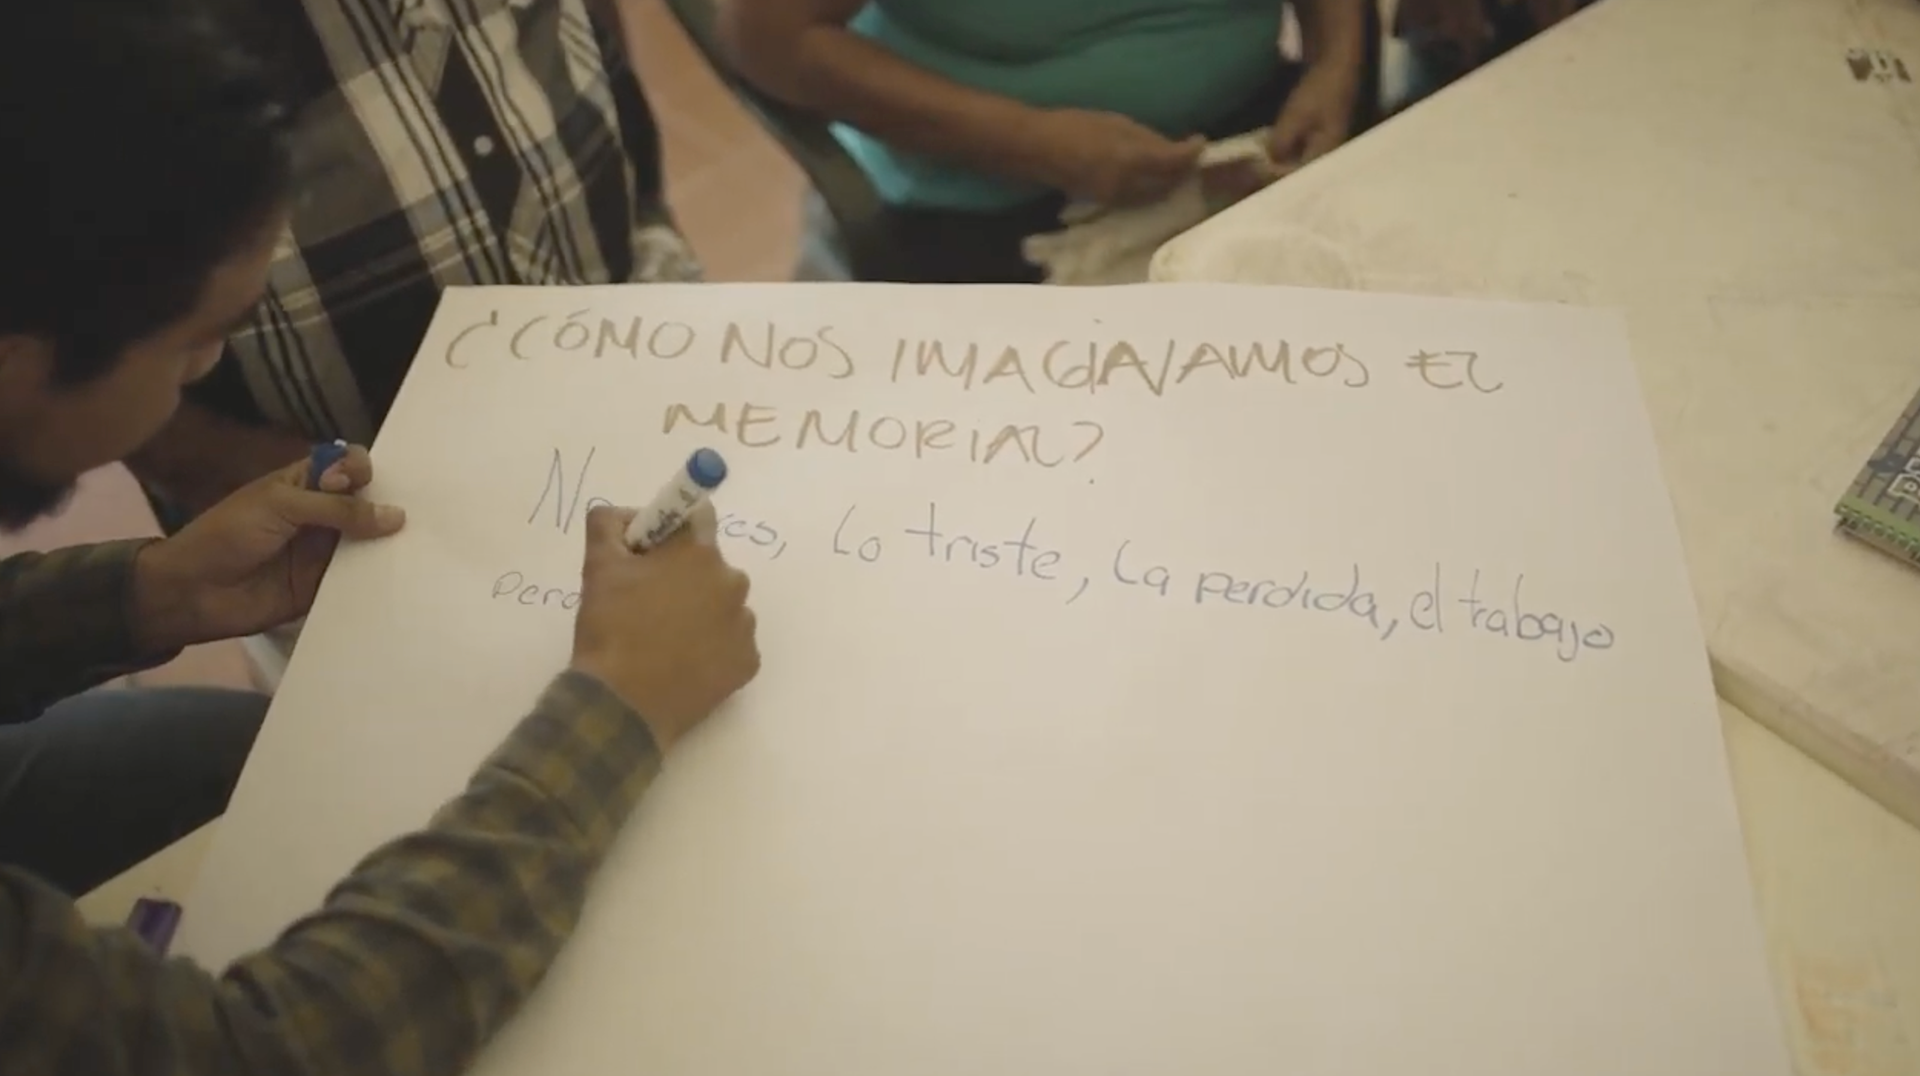 ¿CÓMO NOS IMAGINAMOS EL
MEMORIAL?
lo triste, la perdida, el trabajo